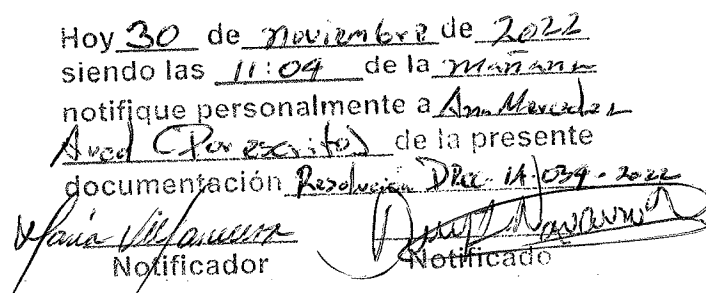 Hoy 30 de noviembre de 2022
siendo las 11:04 de la mañana
notifique personalmente a Ana Mercedes
(Por escrito) de la presente
documentación Resolución 039-2022
María
Notificador Notificado